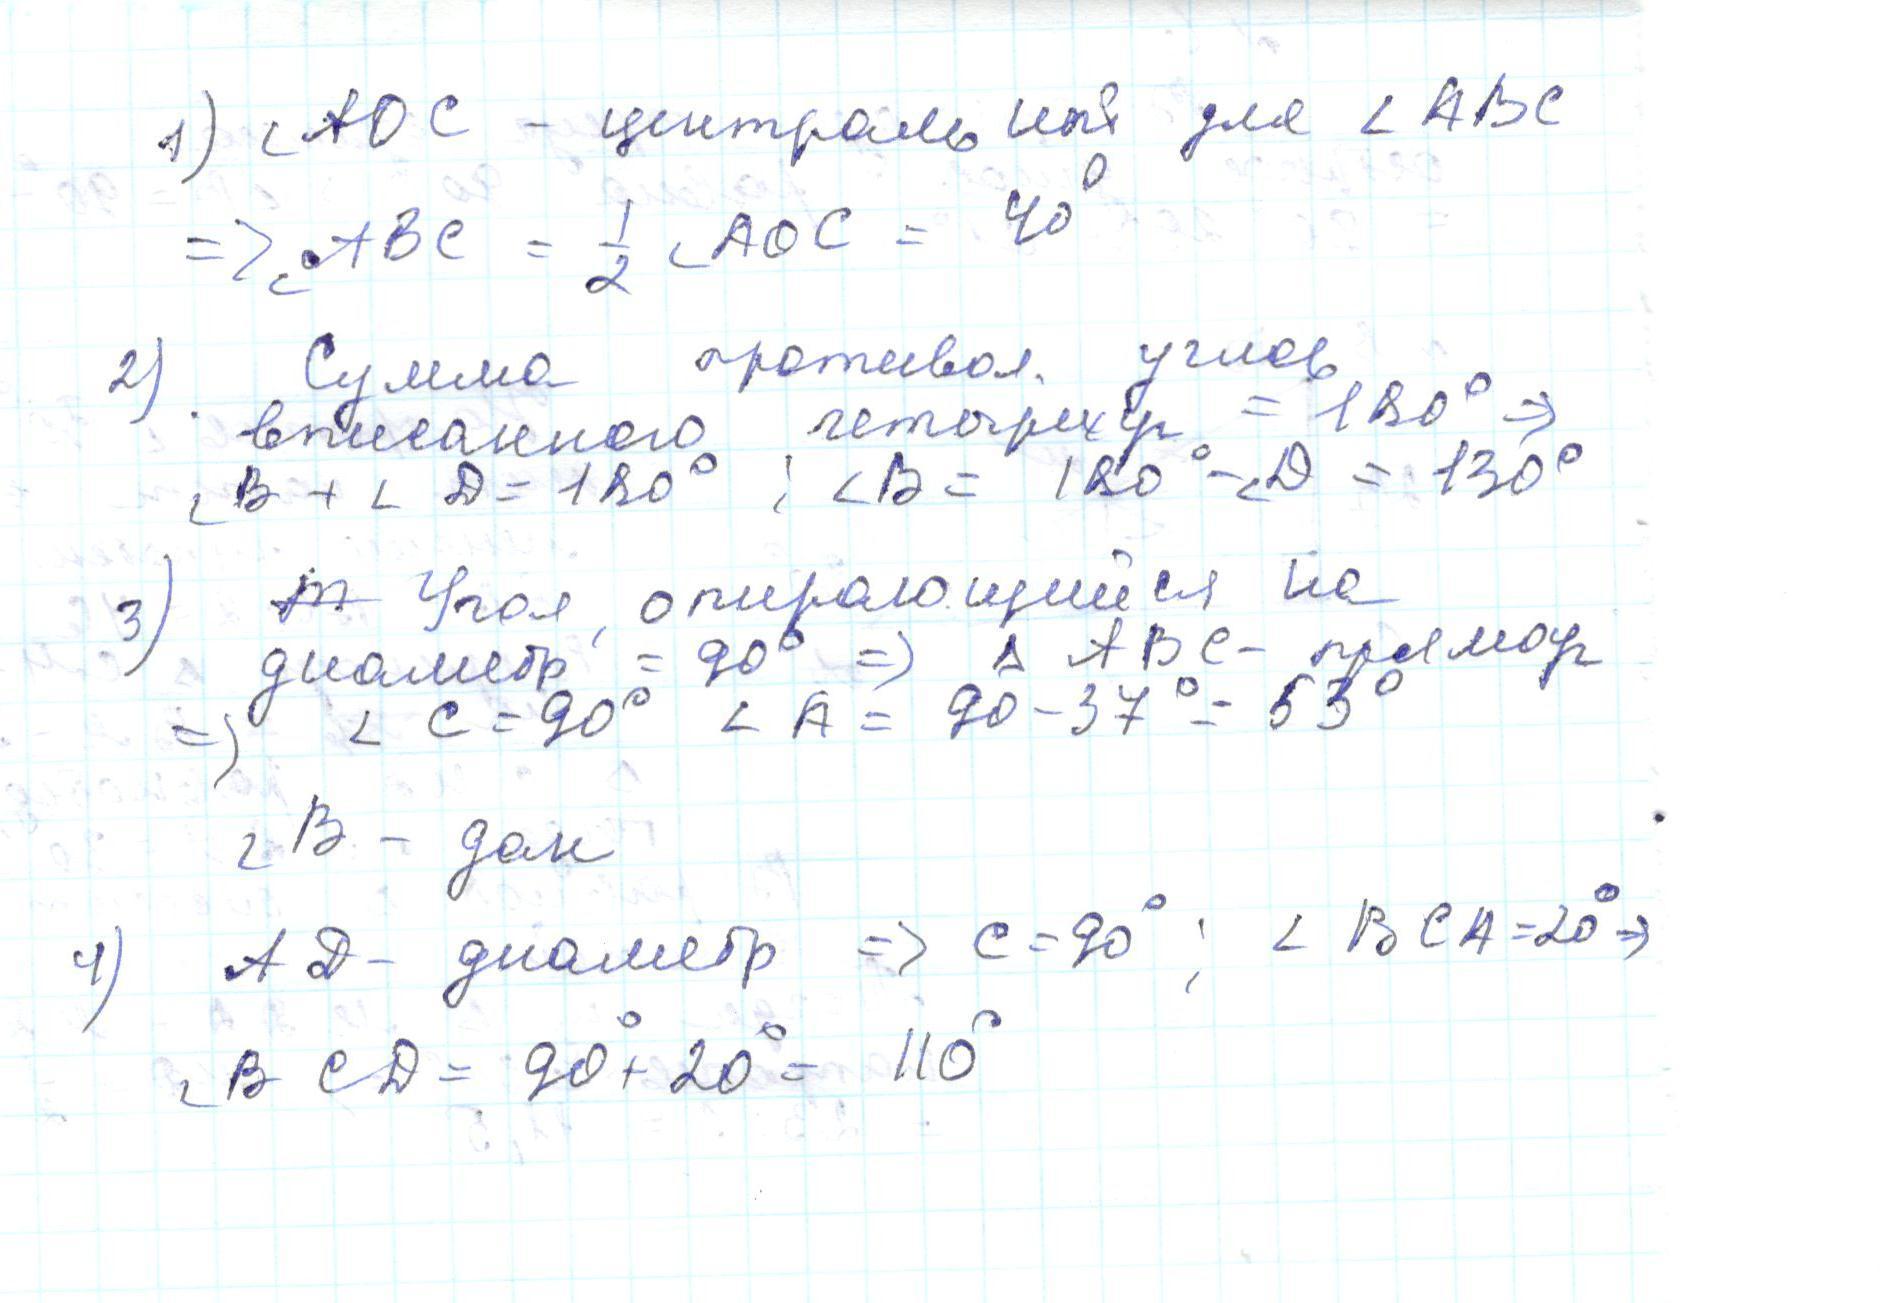 1) ∠AOC - центральный для ∠ABC
=> ∠ABC = 1/2 ∠AOC = 40°
2) Сумма противол. углов
вписанного четырехуг = 180° =>
∠B + ∠D = 180° ; ∠B = 180° - ∠D = 130°
3) Угол, опирающийся на
диаметр = 90° => Δ ABC - прямоуг
=> ∠C = 90° ∠A = 90 - 37° = 53°
∠B - дан
4) AD - диаметр => C = 90° ; ∠BCA = 20° =>
∠BCD = 90° + 20° = 110°